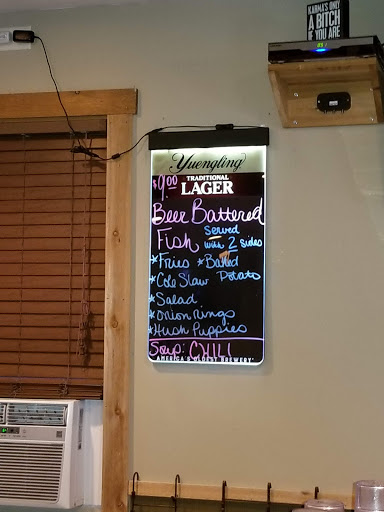 KARMA'S ONLY
A BITCH
IF YOU ARE
Yuengling
TRADITIONAL
$9.00 LAGER
Beer Battered
Fish Served
with 2 sides
*Fries *Baked
Potato
*Cole Slaw
*Salad
*onion rings
*Hush Puppies
Soup: CHILI
AMERICA'S OLDEST BREWERY